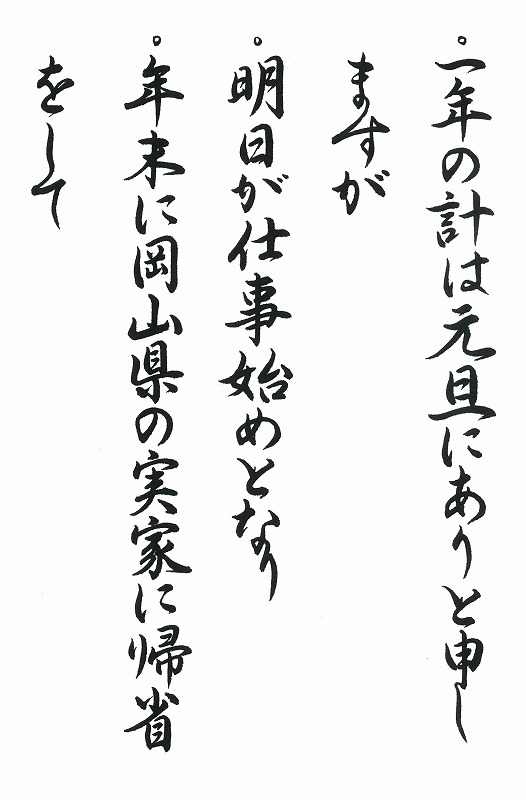 ◦一年の計は元旦にありと申し
ますが
◦明日が仕事始めとなり
◦年末に岡山県の実家に帰省
をして